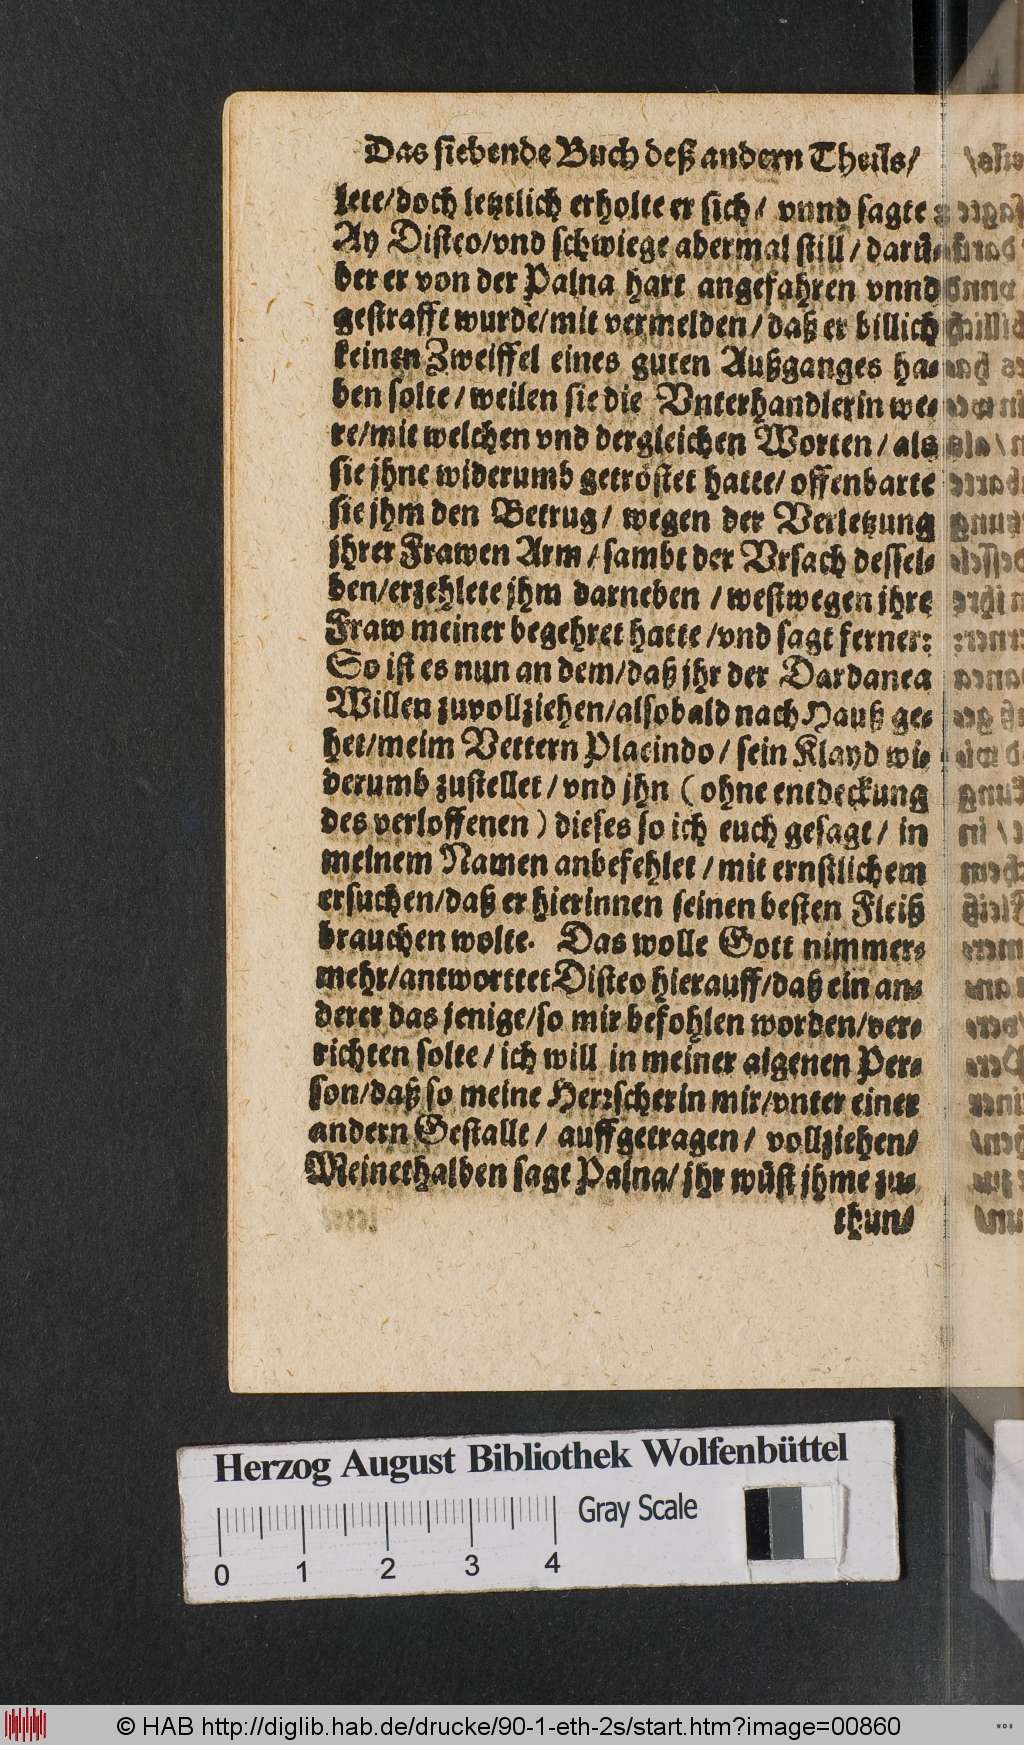 Das siebende Buch deß andern Theils/
lete/doch letztlich erholte er sich/ vnnd sagte
Ay Disteo/vnd schwiege abermal still/ darü-
ber er von der Palna hart angefahren vnnd
gestrafft wurde/mit vermelden/ daß er billich
keinen Zweiffel eines guten Außganges ha-
ben solte/ weilen sie die Vnterhandlerin we-
re/mit welchen vnd dergleichen Worten/ als
sie jhne widerumb getröstet hatte/ offenbarte
sie jhm den Betrug/ wegen der Verletzung
jhrer Frawen Arm/ sambt der Vrsach dessel-
ben/erzehlete jhm darneben / westwegen jhre
Fraw meiner begehret hatte /vnd sagt ferner:
So ist es nun an dem/daß jhr der Dardanea
Willen zuvollziehen/alsobald nach Hauß ge-
het/meim Vettern Placindo/ sein Klayd wi-
derumb zustellet/ vnd jhn (ohne entdeckung
des verloffenen) dieses so ich euch gesagt/ in
meinem Namen anbefehlet / mit ernstlichem
ersuchen/daß er hierinnen seinen besten Fleiß
brauchen wolte. Das wolle Gott nimmer-
mehr/antworttet Disteo hierauff/daß ein an-
derer das jenige/so mir befohlen worden/ver-
richten solte/ ich will in meiner aigenen Per-
son/daß so meine Herrscherin mir/vnter einer
andern Gestallt/ auffgetragen/ vollziehen/
Meinethalben sagt Palna/ jhr wüst jhme zu-
thun/
Herzog August Bibliothek Wolfenbüttel
Gray Scale
0 1 2 3 4
© HAB http://diglib.hab.de/drucke/90-1-eth-2s/start.htm?image=00860